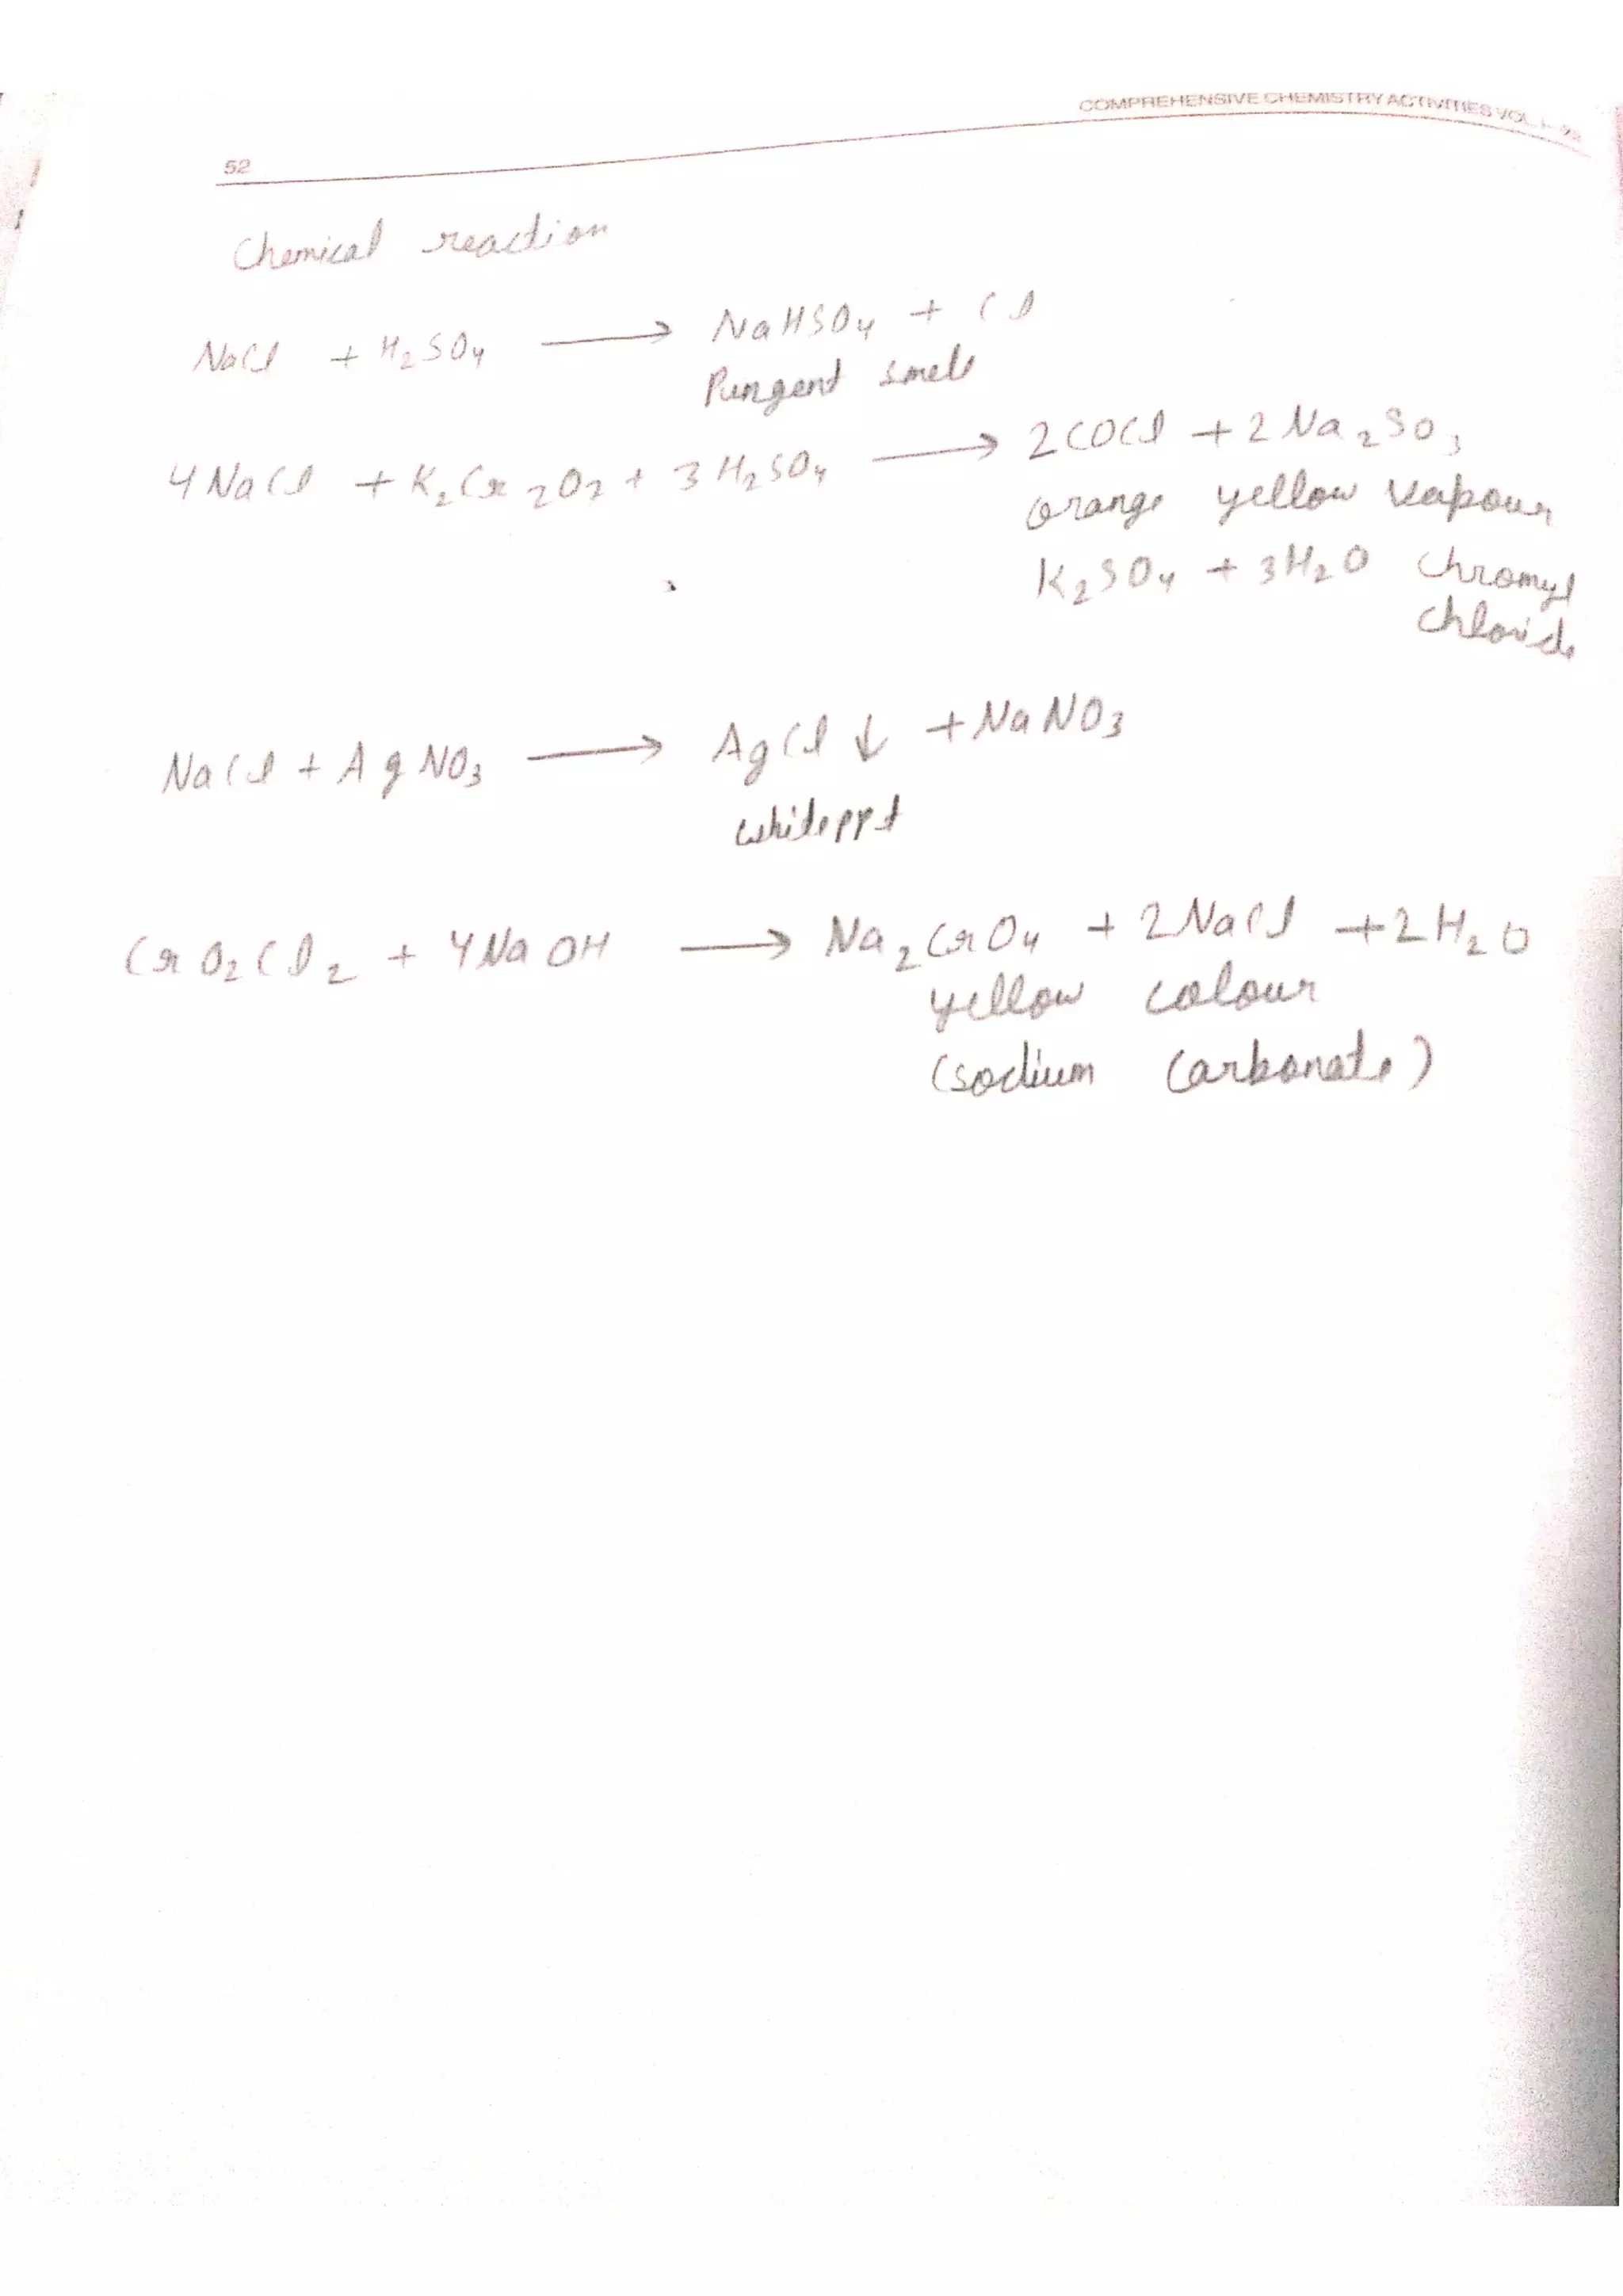 COMPREHENSIVE CHEMISTRY ACTIVITIES VOL. I
52
Chemical reaction
NaCl + H₂SO₄ ⟶ NaHSO₄ + Cl
Pungent smell
4NaCl + K₂Cr₂O₇ + 3H₂SO₄ ⟶ 2COCl + 2Na₂SO₃
orange yellow vapour
K₂SO₄ + 3H₂O chromyl
chloride
NaCl + AgNO₃ ⟶ AgCl ↓ + NaNO₃
white ppt
CrO₂Cl₂ + 4NaOH ⟶ Na₂CrO₄ + 2NaCl + 2H₂O
yellow colour
(sodium carbonate)